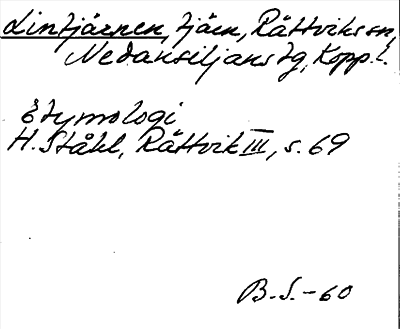 Lintjärnen, tjärn, Rättviks sn,
Nedansiljans tg, Kopp. l.
Etymologi
H. Ståhl, Rättvik III, s. 69
B.S.-60